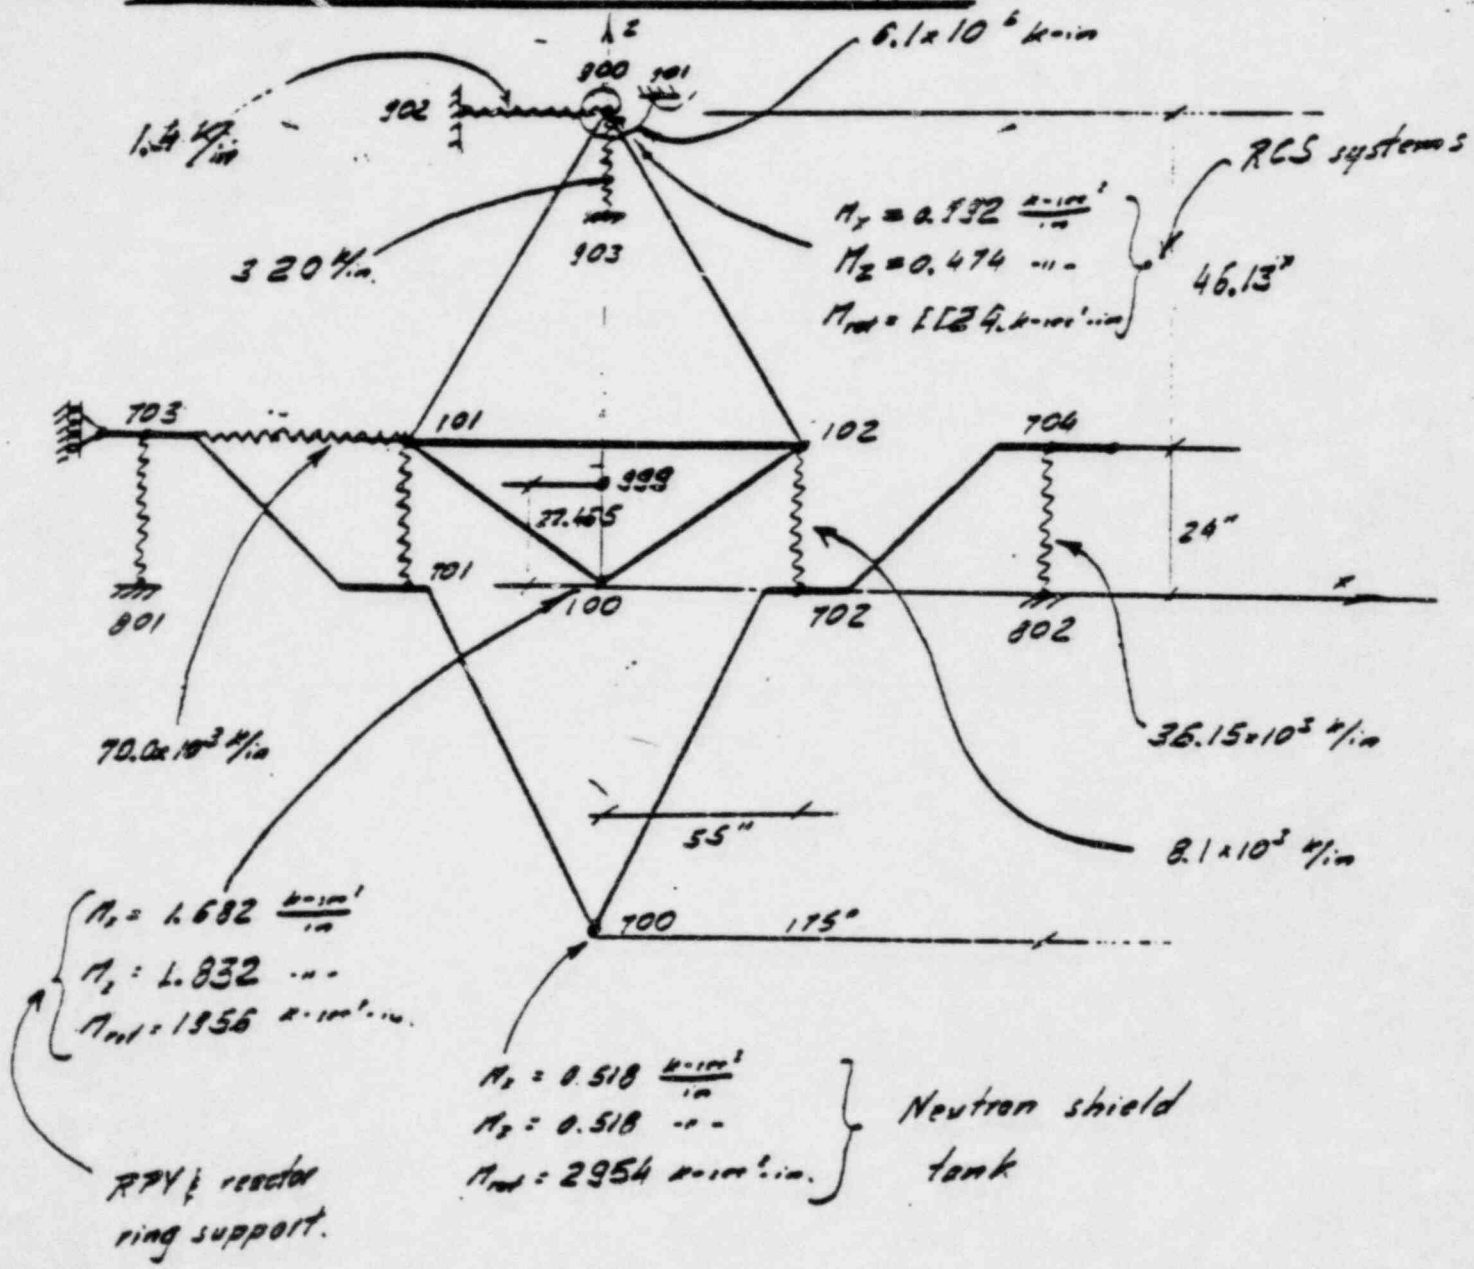 z
6.1x10⁶ k-in
900
901
902
RCS systems
320 k/in.
903
M_z = 0.474 -"-
46.13"
703
101
102
704
999
27.465
24"
701
100
702
x
801
802
70.0x10³ k/in
36.15x10³ k/in
55"
8.1x10³ k/in
700
175"
M_x = 1.682 k-sec²/in
M_z = 1.832 -"-
M_rot = 1956 k-sec²-in.
M_x = 0.518 k-sec²/in
M_z = 0.518 -"-
M_rot = 2954 k-sec²-in.
Neutron shield
tank
reactor
ring support.